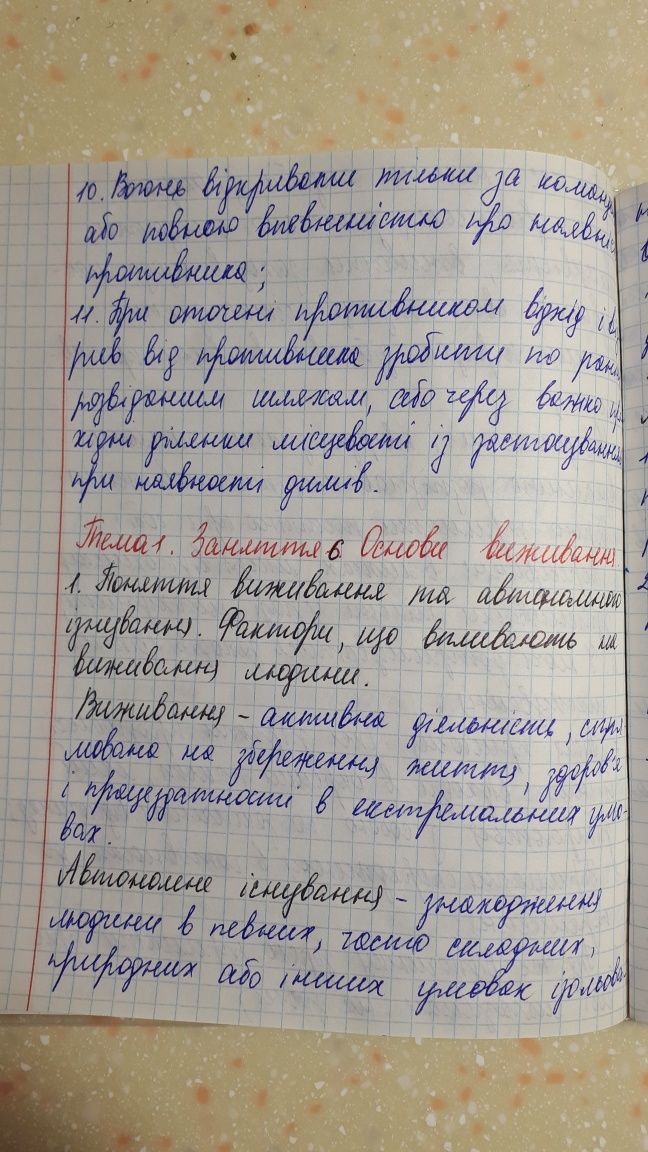 10. Вогонь відкривати тільки за команд
або повною впевненістю про наявніс
противника;
11. При оточені противником відхід і ві
рив від противника зробити по рані
розвіданим шляхам, або через важко пр
хідні ділянки місцевості із застосуванням
при наявності димів.
Тема 1. Заняття 6 Основи виживання
1. Поняття виживання та автономного
існування. Фактори, що впливають на
виживання людини.
Виживання - активна діяльність, спря
мована на збереження життя, здоров'я
і працездатності в екстремальних умо-
вах.
Автономне існування - знаходження
людини в певних, часто складних,
природних або інших умовах ізольова